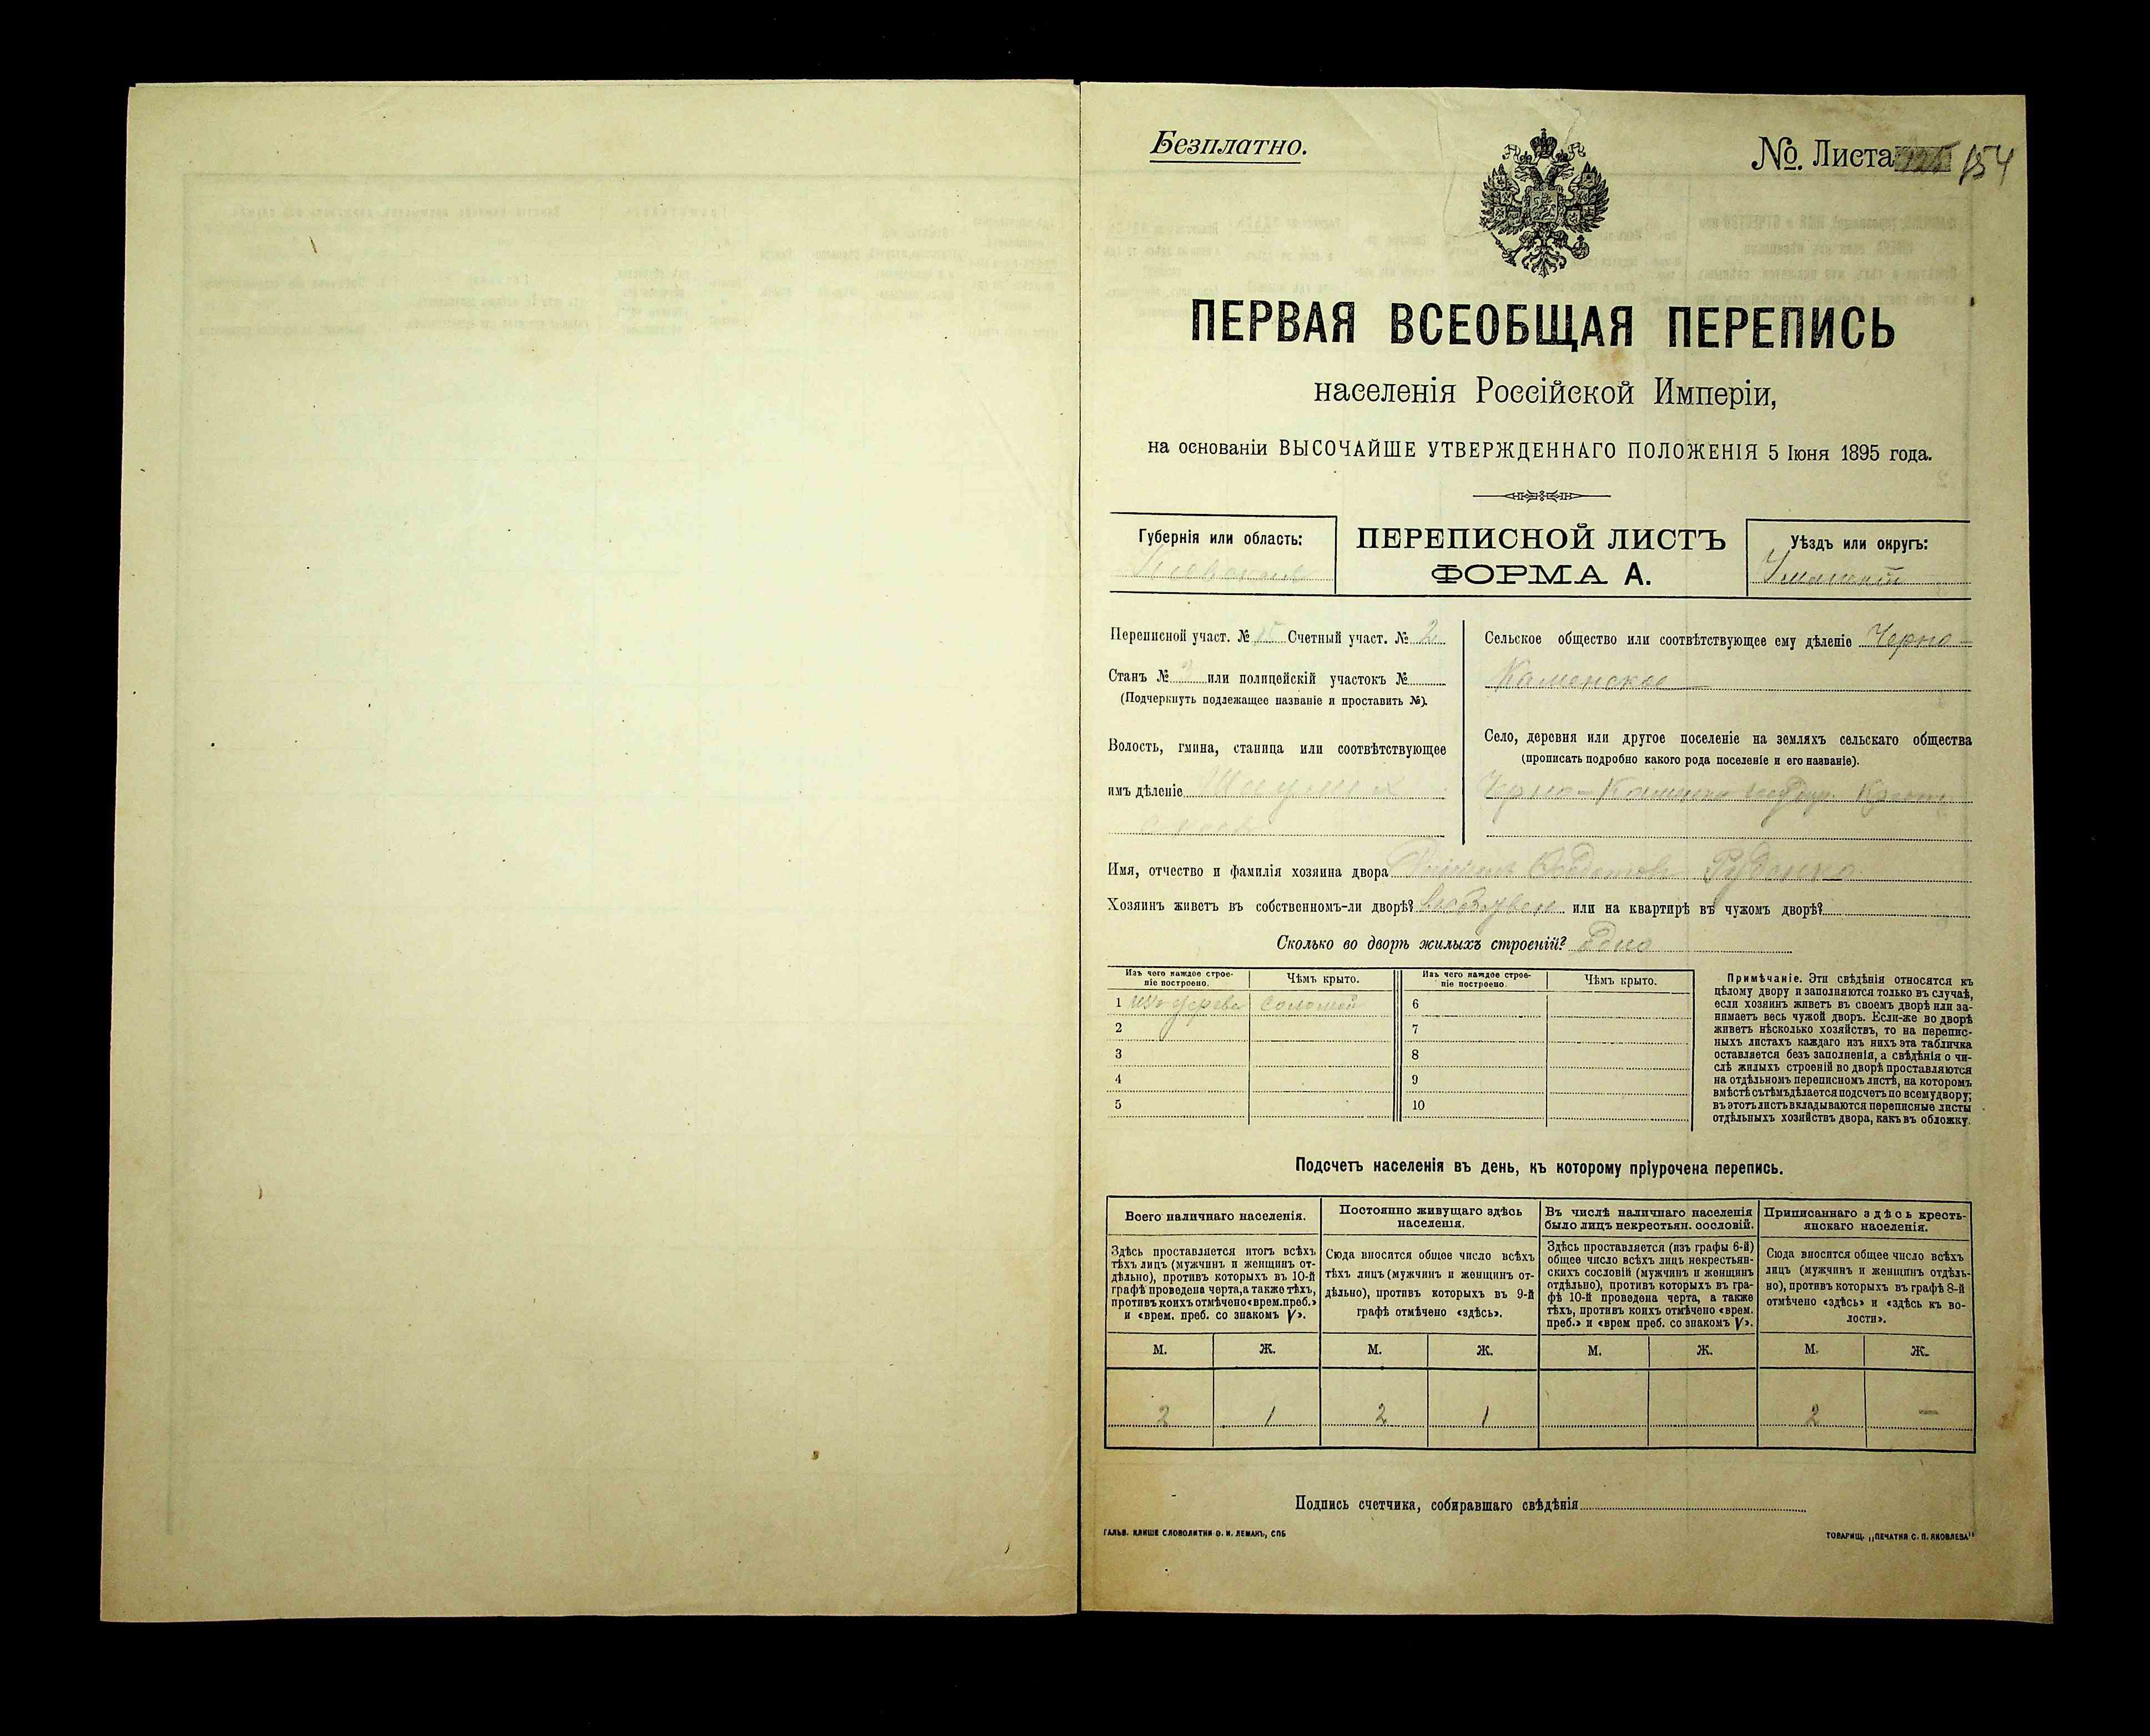 Безплатно.
№. Листа 154
ПЕРВАЯ ВСЕОБЩАЯ ПЕРЕПИСЬ
населенія Россійской Имперіи,
на основаніи ВЫСОЧАЙШЕ УТВЕРЖДЕННАГО ПОЛОЖЕНІЯ 5 Іюня 1895 года.
Губернія или область:
ПЕРЕПИСНОЙ ЛИСТЪ
ФОРМА А.
Уѣздъ или округъ:
Уманскій
Переписной участ. № Счетный участ. № 2
Станъ № или полицейскій участокъ №
(Подчеркнуть подлежащее названіе и проставить №).
Волость, гмина, станица или соотвѣтствующее
имъ дѣленіе
Сельское общество или соотвѣтствующее ему дѣленіе Черно-
Каменское
Село, деревня или другое поселеніе на земляхъ сельскаго общества
(прописать подробно какого рода поселеніе и его названіе).
Черно-Каменка
Имя, отчество и фамилія хозяина двора Руденко
Хозяинъ живетъ въ собственномъ-ли дворѣ? или на квартирѣ въ чужомъ дворѣ?
Сколько во дворѣ жилыхъ строеній? Одно
Изъ чего каждое строе-
ніе построено.
Чѣмъ крыто.
Изъ чего каждое строе-
ніе построено.
Чѣмъ крыто.
1 изъ дерева соломой 6
2 7
3 8
4 9
5 10
Примѣчаніе. Эти свѣдѣнія относятся къ
цѣлому двору и заполняются только въ случаѣ,
если хозяинъ живетъ въ своемъ дворѣ или за-
нимаетъ весь чужой дворъ. Если-же во дворѣ
живетъ нѣсколько хозяйствъ, то на перепис-
ныхъ листахъ каждаго изъ нихъ эта табличка
оставляется безъ заполненія, а свѣдѣнія о чи-
слѣ жилыхъ строеній во дворѣ проставляются
на отдѣльномъ переписномъ листѣ, на которомъ
вмѣстѣ съ тѣмъ дѣлается подсчетъ по всему двору;
въ этотъ листъ вкладываются переписные листы
отдѣльныхъ хозяйствъ двора, какъ въ обложку.
Подсчетъ населенія въ день, къ которому пріурочена перепись.
Всего наличнаго населенія.
Здѣсь проставляется итогъ всѣхъ
тѣхъ лицъ (мужчинъ и женщинъ от-
дѣльно), противъ которыхъ въ 10-й
графѣ проведена черта, а также тѣхъ,
противъ коихъ отмѣчено «врем. преб.»
и «врем. преб. со знакомъ V».
Постоянно живущаго здѣсь
населенія.
Сюда вносится общее число всѣхъ
тѣхъ лицъ (мужчинъ и женщинъ от-
дѣльно), противъ которыхъ въ 9-й
графѣ отмѣчено «здѣсь».
Въ числѣ наличнаго населенія
было лицъ некрестьян. сословій.
Здѣсь проставляется (изъ графы 6-й)
общее число всѣхъ лицъ некрестьян-
скихъ сословій (мужчинъ и женщинъ
отдѣльно), противъ которыхъ въ гра-
фѣ 10-й проведена черта, а также
тѣхъ, противъ коихъ отмѣчено «врем.
преб.» и «врем преб. со знакомъ V».
Приписаннаго здѣсь кресть-
янскаго населенія.
Сюда вносится общее число всѣхъ
лицъ (мужчинъ и женщинъ отдѣль-
но), противъ которыхъ въ графѣ 8-й
отмѣчено «здѣсь» и «здѣсь къ во-
лости».
М. Ж. М. Ж. М. Ж. М. Ж.
2 1 2 1 2 —
Подпись счетчика, собиравшаго свѣдѣнія
ГАЛЬВ. КЛИШЕ СЛОВОЛИТНИ О. И. ЛЕМАНЪ, СПБ
ТОВАРИЩ. „ПЕЧАТНЯ С. П. ЯКОВЛЕВА"